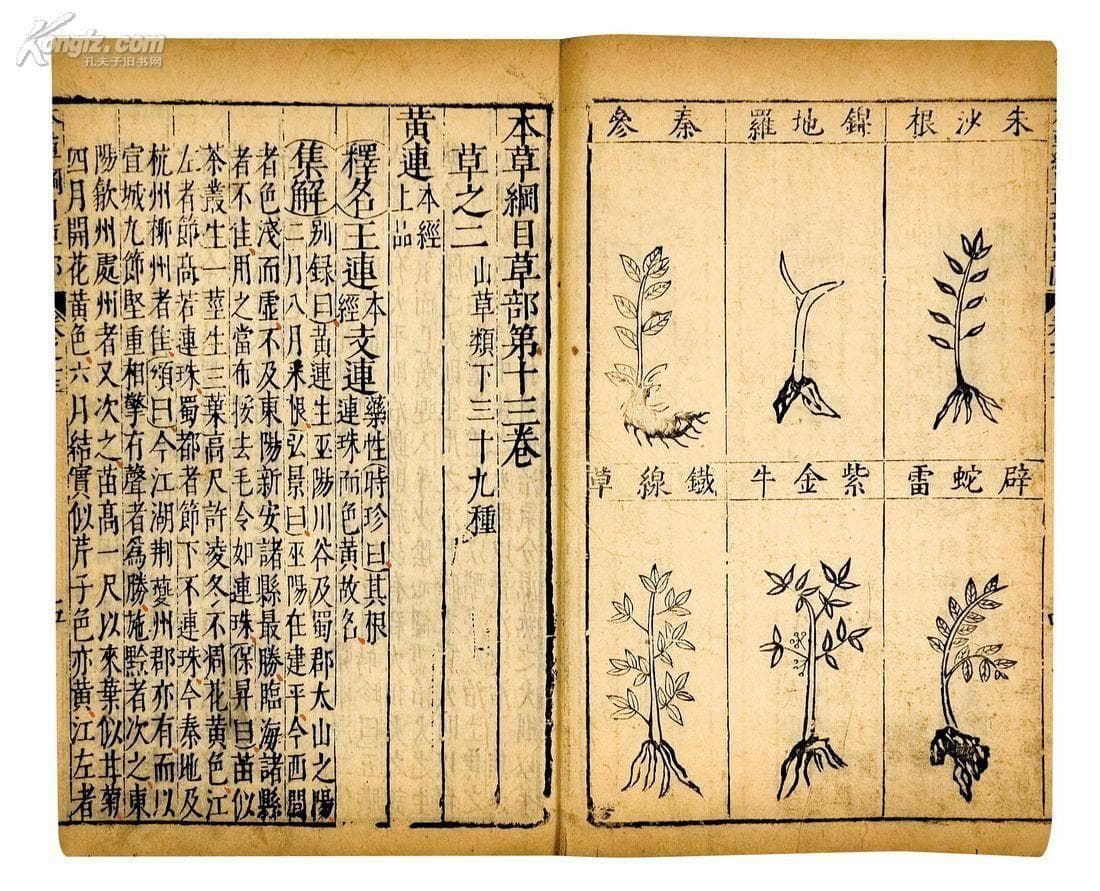 Kongfz.com
孔夫子旧书网
朱沙根
錦地羅
秦參
辟蛇雷
紫金牛
鐵線草
本草綱目草部第十三卷
草之二 山草類下三十九種
黃連 本經上品
釋名 王連 本經 支連 藥性 時珍曰其根
連珠而色黃故名
集解 別録曰黃連生巫陽川谷及蜀郡太山之陽
二月八月采根弘景曰巫陽在建平今西間
者色淺而虛不及東陽新安諸縣最勝臨海諸縣
者不佳用之當布挼去毛令如連珠保昇曰苗似
茶叢生一莖生三葉高尺許凌冬不凋花黃色江
左者節高若連珠蜀都者節下不連珠今秦地及
杭州柳州者佳頌曰今江湖荊夔州郡亦有而以
宣城九節堅重相擊有聲者爲勝施黔者次之東
陽歙州處州者又次之苗高一尺以來葉似甘菊
四月開花黃色六月結實似芹子色亦黃江左者